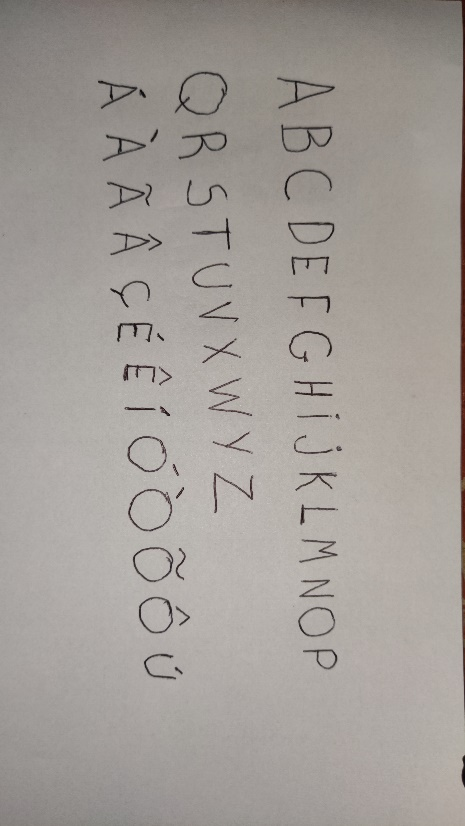 A B C D E F G H i j K L M N O P
Q R S T U V X W Y Z
Á À Ã Â Ç É Ê Í Ó Ò Õ Ô Ú